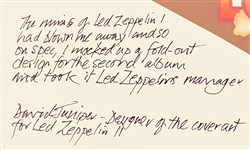 The music of Led Zeppelin I
had blown me away and so
on spec, I mocked up a fold-out
design for the second album
and took it Led Zeppelins manager
David Juniper - Designer of the cover art
for Led Zeppelin II